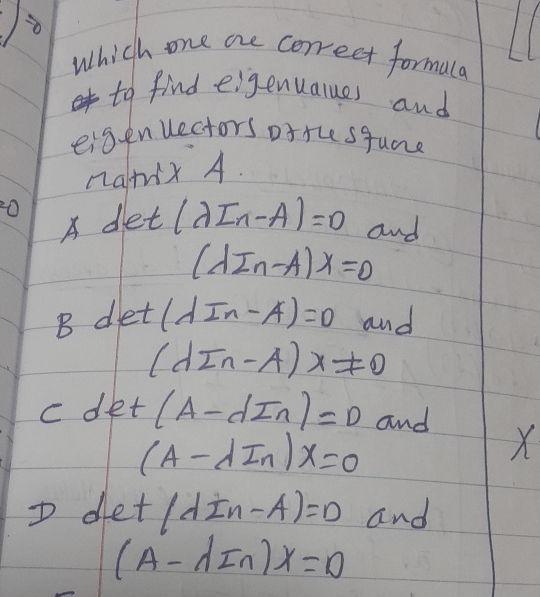 )=0
which one are correct formula
to find eigenvalues and
eigenvectors of the square
matrix A.
=0
A det(λIn-A)=0 and
(λIn-A)X=0
B det(λIn-A)=0 and
(λIn-A)X≠0
C det(A-λIn)=0 and
(A-λIn)X=0
X
D det(λIn-A)=0 and
(A-λIn)X=0